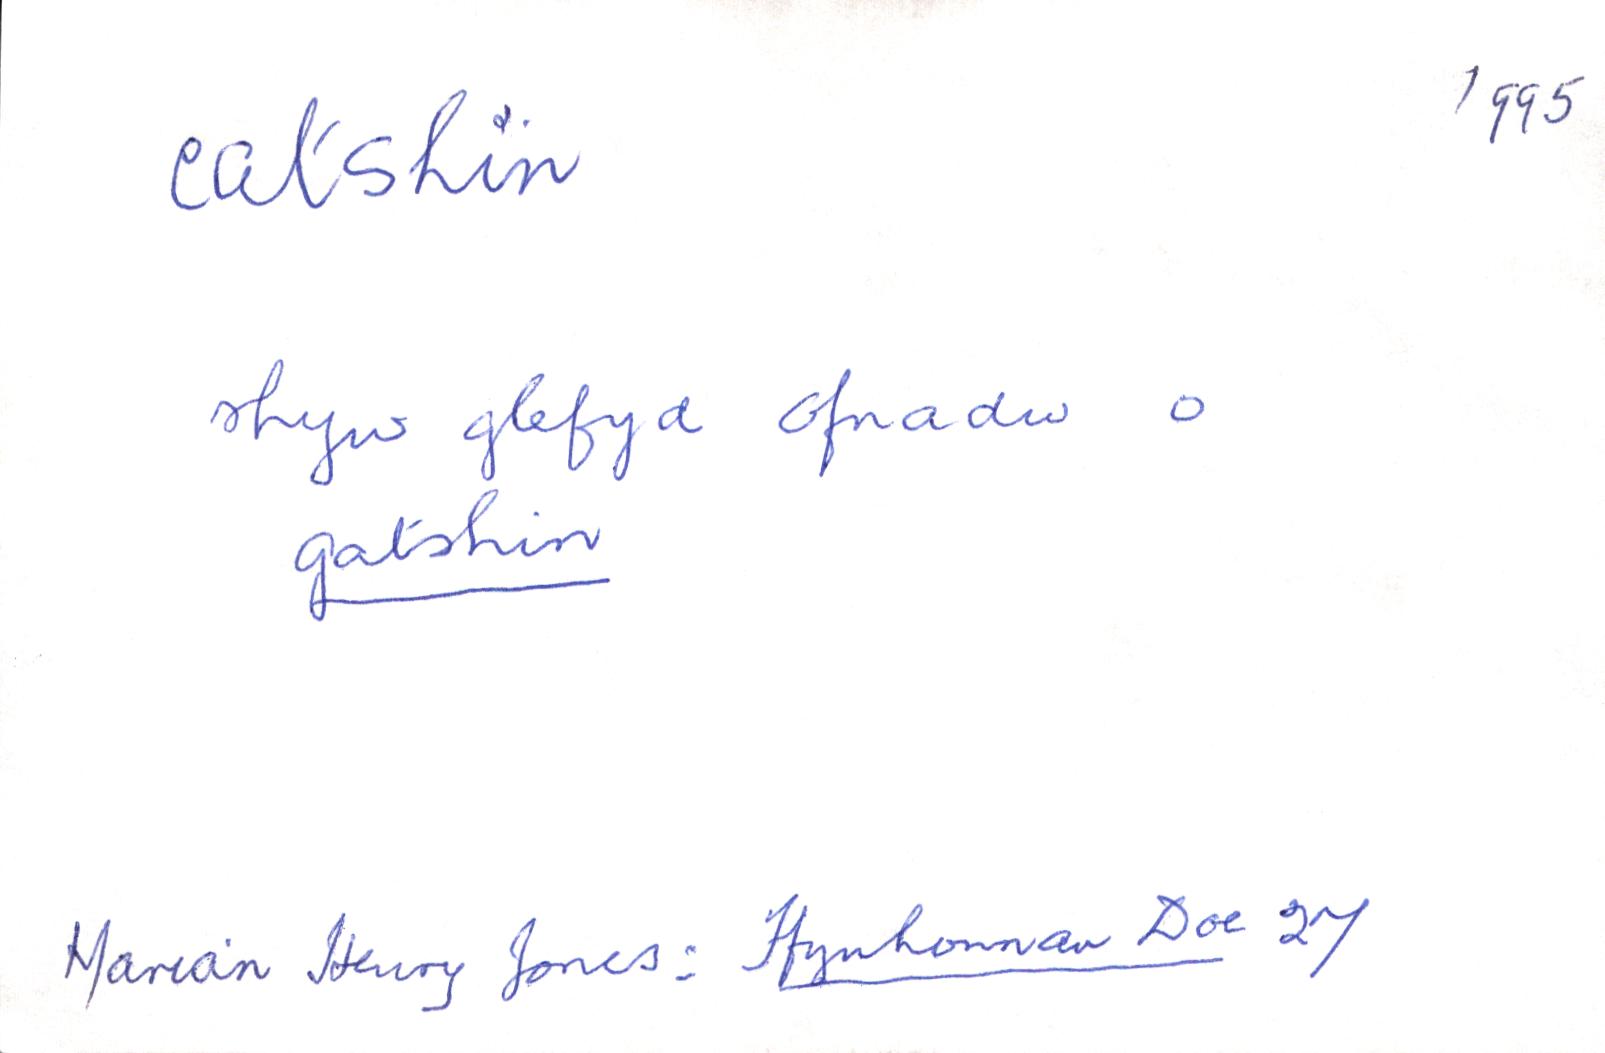 1995
catshin
rhyw glefyd ofnadw o
gatshin
Marian Henry Jones: Ffynhonnau Doe 27